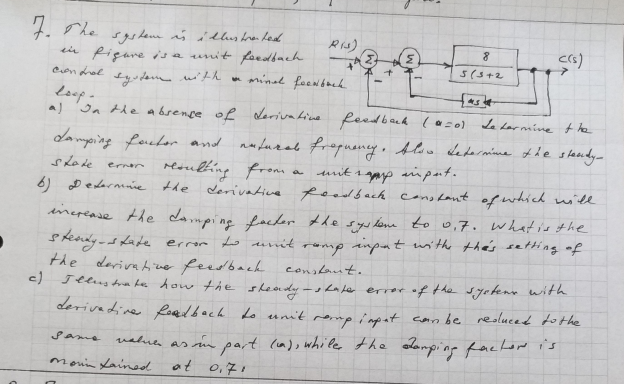 7. The system is illustrated
in figure is a unit feedback
control system with a minal feedback
loop.
R(s) + Σ + Σ 8 C(s)
s(s+2
- - as
a) In the absence of derivative feedback (a=0) determine the
damping factor and natural frequency. Also determine the steady-
state error resulting from a unit ramp input.
b) Determine the derivative feedback constant of which will
increase the damping factor the system to 0,7. What is the
steady-state error to unit ramp input with this setting of
the derivative feedback constant.
c) Illustrate how the steady-state error of the system with
derivative feedback to unit ramp input can be reduced to the
same value as in part (a), while the damping factor is
maintained at 0,7.